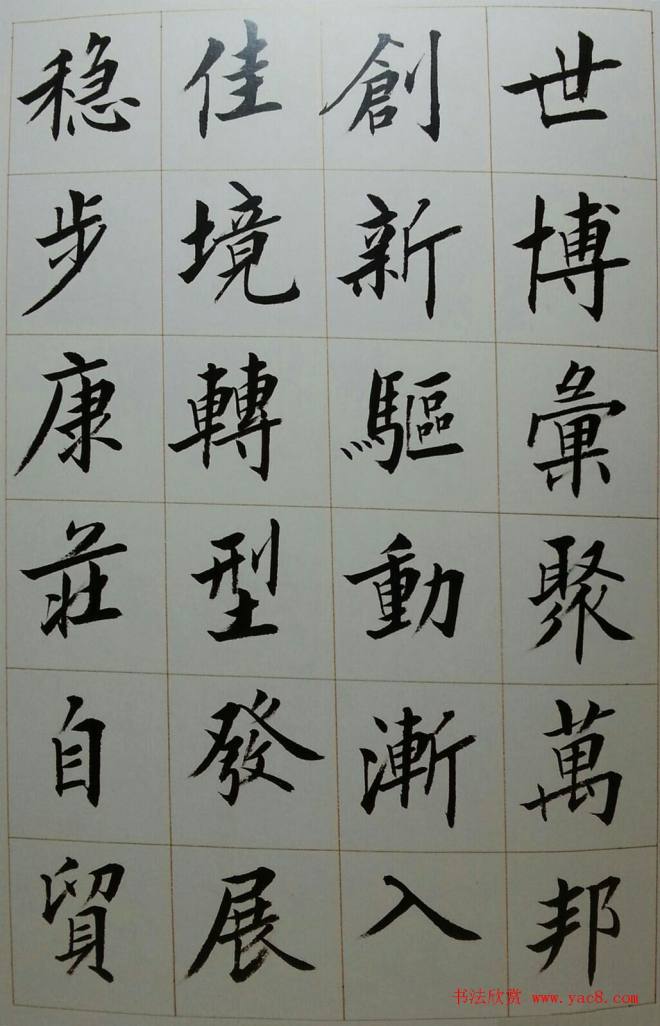 世博彙聚萬邦
創新驅動漸入
佳境轉型發展
穏步康莊自貿
书法欣赏 www.yac8.com